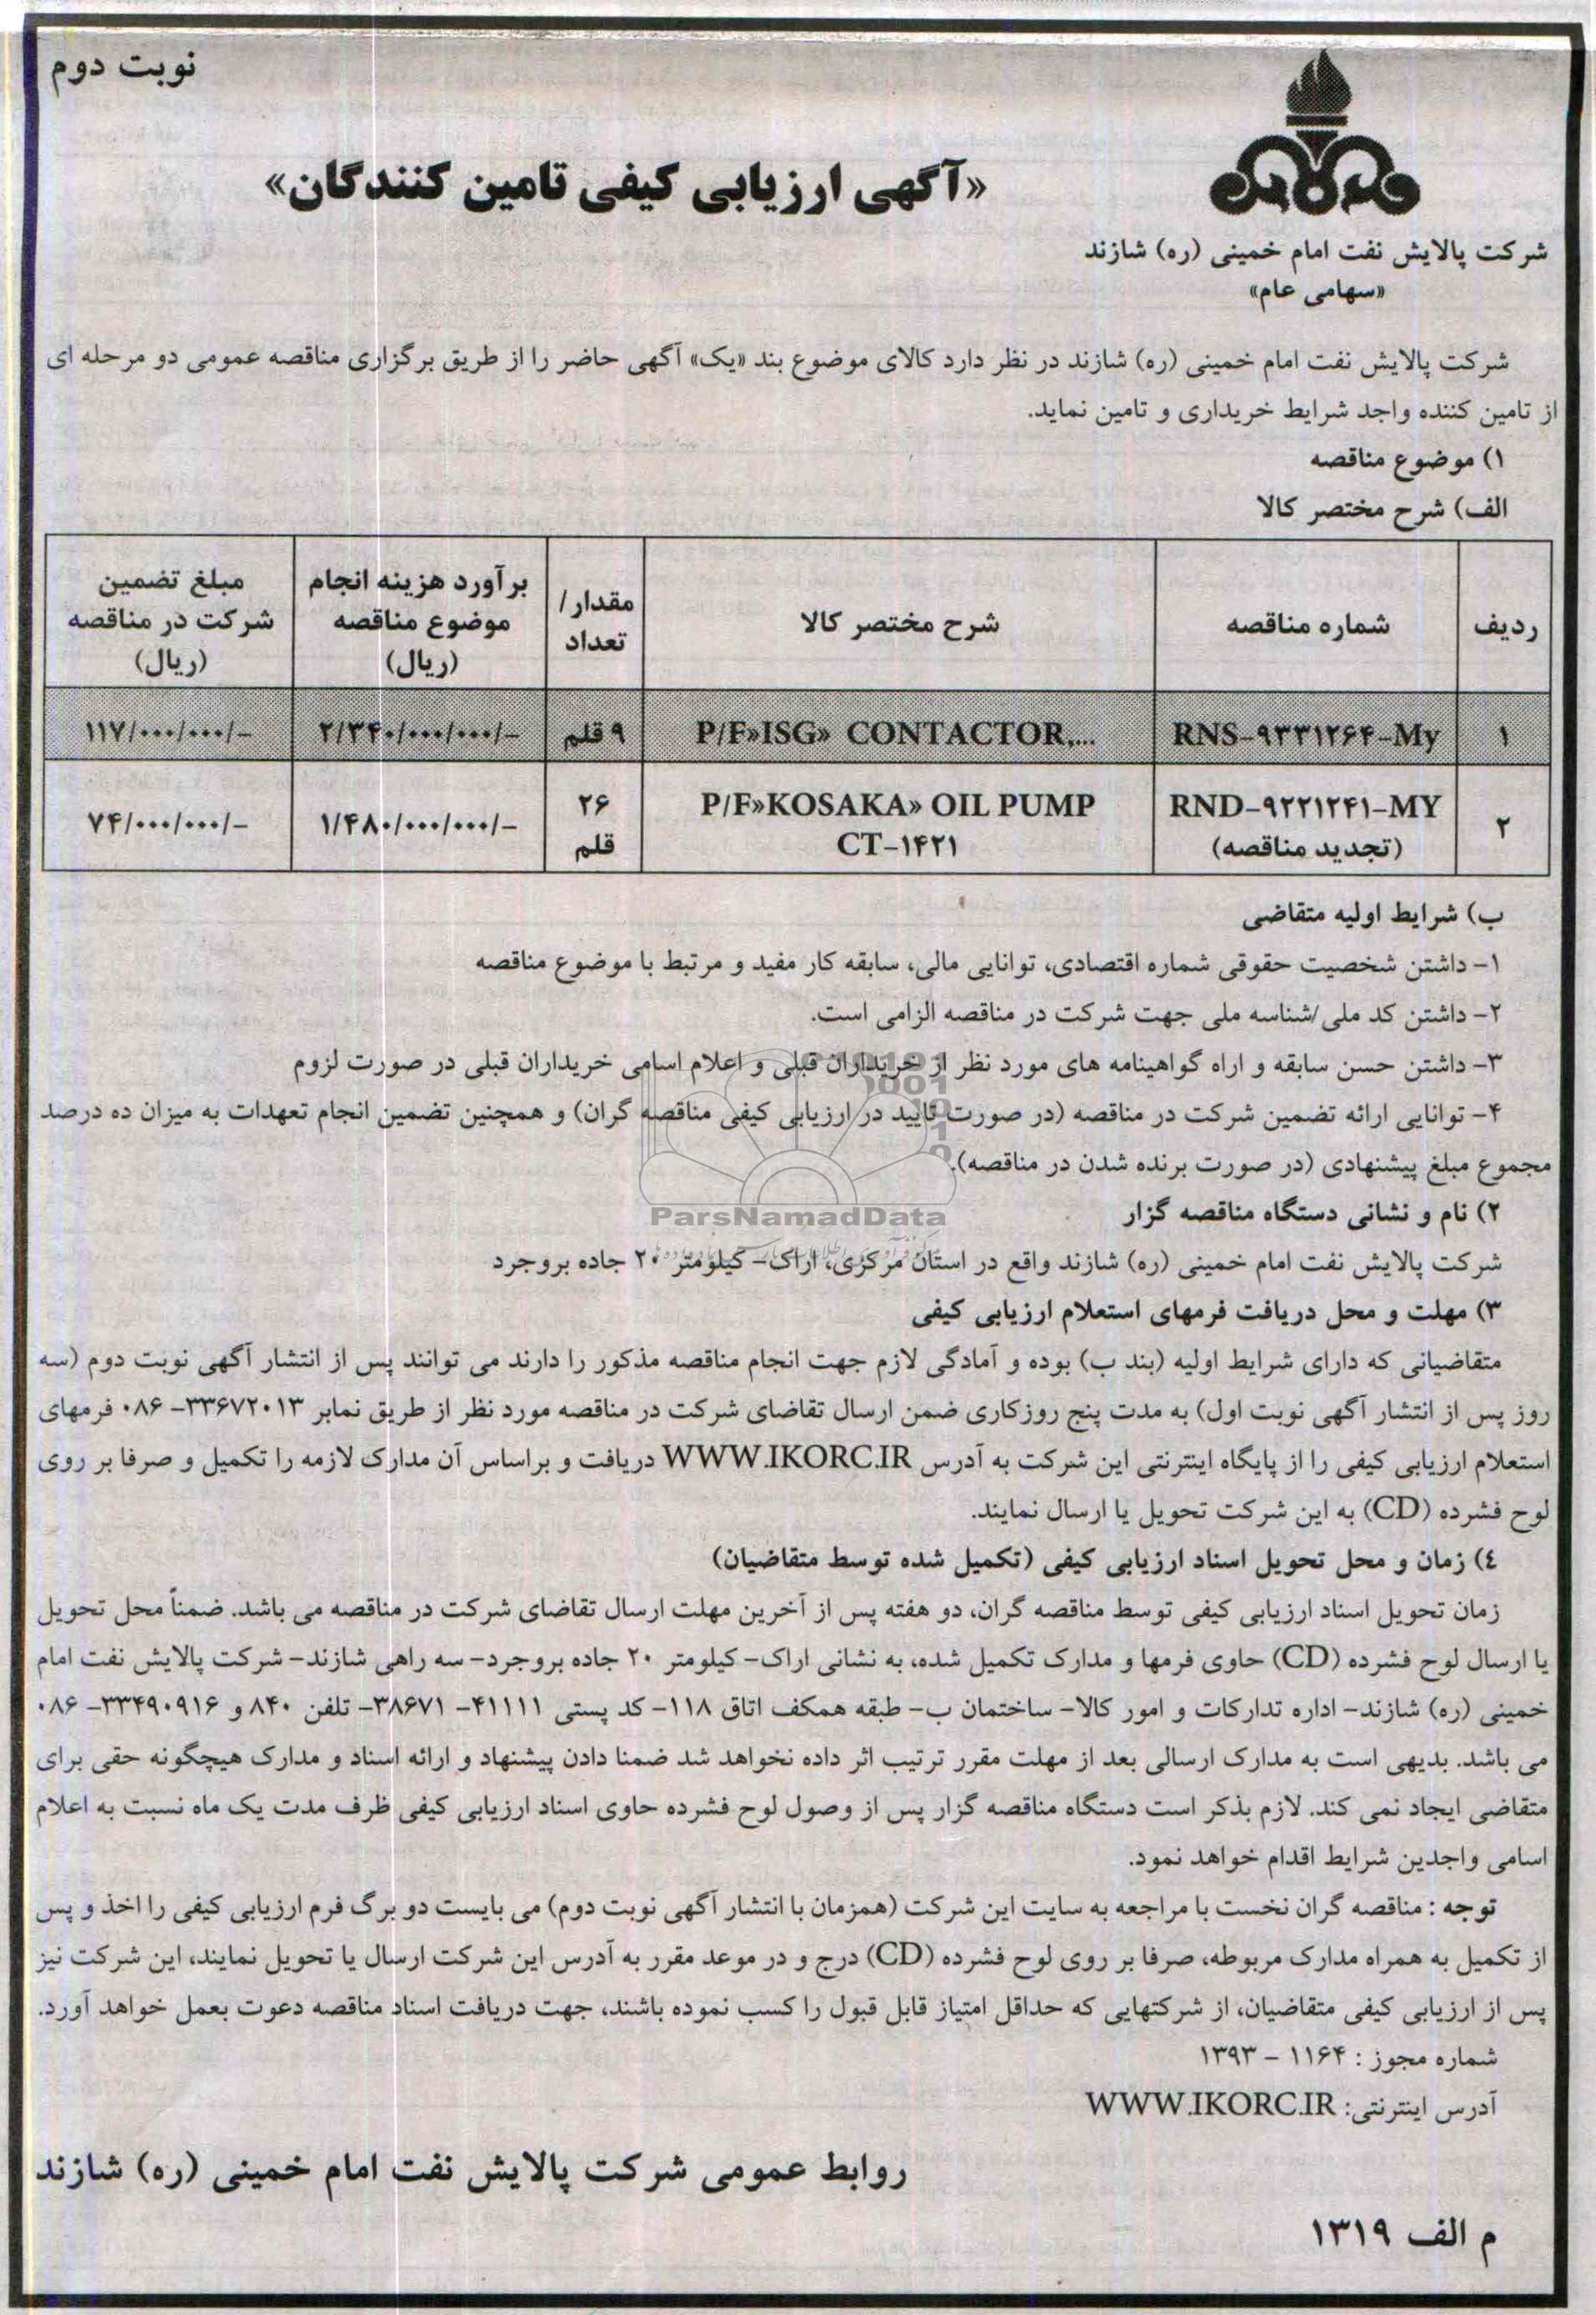 نوبت دوم
«آگهی ارزیابی کیفی تامین کنندگان»
شرکت پالایش نفت امام خمینی (ره) شازند
«سهامی عام»
شرکت پالایش نفت امام خمینی (ره) شازند در نظر دارد کالای موضوع بند «یک» آگهی حاضر را از طریق برگزاری مناقصه عمومی دو مرحله ای
از تامین کننده واجد شرایط خریداری و تامین نماید.
۱) موضوع مناقصه
الف) شرح مختصر کالا
ردیف | شماره مناقصه | شرح مختصر کالا | مقدار/ تعداد | برآورد هزینه انجام موضوع مناقصه (ریال) | مبلغ تضمین شرکت در مناقصه (ریال)
۱ | RNS-۹۳۳۱۲۶۴-My | P/F»ISG» CONTACTOR,... | ۹ قلم | ۲/۳۴۰/۰۰۰/۰۰۰/- | ۱۱۷/۰۰۰/۰۰۰/-
۲ | RND-۹۲۲۱۲۴۱-MY (تجدید مناقصه) | P/F»KOSAKA» OIL PUMP CT-۱۴۲۱ | ۲۶ قلم | ۱/۴۸۰/۰۰۰/۰۰۰/- | ۷۴/۰۰۰/۰۰۰/-
ب) شرایط اولیه متقاضی
۱- داشتن شخصیت حقوقی شماره اقتصادی، توانایی مالی، سابقه کار مفید و مرتبط با موضوع مناقصه
۲- داشتن کد ملی/شناسه ملی جهت شرکت در مناقصه الزامی است.
۳- داشتن حسن سابقه و اراه گواهینامه های مورد نظر از خریداران قبلی و اعلام اسامی خریداران قبلی در صورت لزوم
۴- توانایی ارائه تضمین شرکت در مناقصه (در صورت تایید در ارزیابی کیفی مناقصه گران) و همچنین تضمین انجام تعهدات به میزان ده درصد
مجموع مبلغ پیشنهادی (در صورت برنده شدن در مناقصه).
ParsNamadData
۲) نام و نشانی دستگاه مناقصه گزار
شرکت پالایش نفت امام خمینی (ره) شازند واقع در استان مرکزی، اراک- کیلومتر ۲۰ جاده بروجرد
۳) مهلت و محل دریافت فرمهای استعلام ارزیابی کیفی
متقاضیانی که دارای شرایط اولیه (بند ب) بوده و آمادگی لازم جهت انجام مناقصه مذکور را دارند می توانند پس از انتشار آگهی نوبت دوم (سه
روز پس از انتشار آگهی نوبت اول) به مدت پنج روزکاری ضمن ارسال تقاضای شرکت در مناقصه مورد نظر از طریق نمابر ۳۳۶۷۲۰۱۳- ۰۸۶ فرمهای
استعلام ارزیابی کیفی را از پایگاه اینترنتی این شرکت به آدرس WWW.IKORC.IR دریافت و براساس آن مدارک لازمه را تکمیل و صرفا بر روی
لوح فشرده (CD) به این شرکت تحویل یا ارسال نمایند.
٤) زمان و محل تحویل اسناد ارزیابی کیفی (تکمیل شده توسط متقاضیان)
زمان تحویل اسناد ارزیابی کیفی توسط مناقصه گران، دو هفته پس از آخرین مهلت ارسال تقاضای شرکت در مناقصه می باشد. ضمناً محل تحویل
یا ارسال لوح فشرده (CD) حاوی فرمها و مدارک تکمیل شده، به نشانی اراک- کیلومتر ۲۰ جاده بروجرد- سه راهی شازند- شرکت پالایش نفت امام
خمینی (ره) شازند- اداره تدارکات و امور کالا- ساختمان ب- طبقه همکف اتاق ۱۱۸- کد پستی ۴۱۱۱۱- ۳۸۶۷۱- تلفن ۸۴۰ و ۳۳۴۹۰۹۱۶- ۰۸۶
می باشد. بدیهی است به مدارک ارسالی بعد از مهلت مقرر ترتیب اثر داده نخواهد شد ضمنا دادن پیشنهاد و ارائه اسناد و مدارک هیچگونه حقی برای
متقاضی ایجاد نمی کند. لازم بذکر است دستگاه مناقصه گزار پس از وصول لوح فشرده حاوی اسناد ارزیابی کیفی ظرف مدت یک ماه نسبت به اعلام
اسامی واجدین شرایط اقدام خواهد نمود.
توجه : مناقصه گران نخست با مراجعه به سایت این شرکت (همزمان با انتشار آگهی نوبت دوم) می بایست دو برگ فرم ارزیابی کیفی را اخذ و پس
از تکمیل به همراه مدارک مربوطه، صرفا بر روی لوح فشرده (CD) درج و در موعد مقرر به آدرس این شرکت ارسال یا تحویل نمایند، این شرکت نیز
پس از ارزیابی کیفی متقاضیان، از شرکتهایی که حداقل امتیاز قابل قبول را کسب نموده باشند، جهت دریافت اسناد مناقصه دعوت بعمل خواهد آورد.
شماره مجوز : ۱۱۶۴ - ۱۳۹۳
آدرس اینترنتی: WWW.IKORC.IR
روابط عمومی شرکت پالایش نفت امام خمینی (ره) شازند
م الف ۱۳۱۹